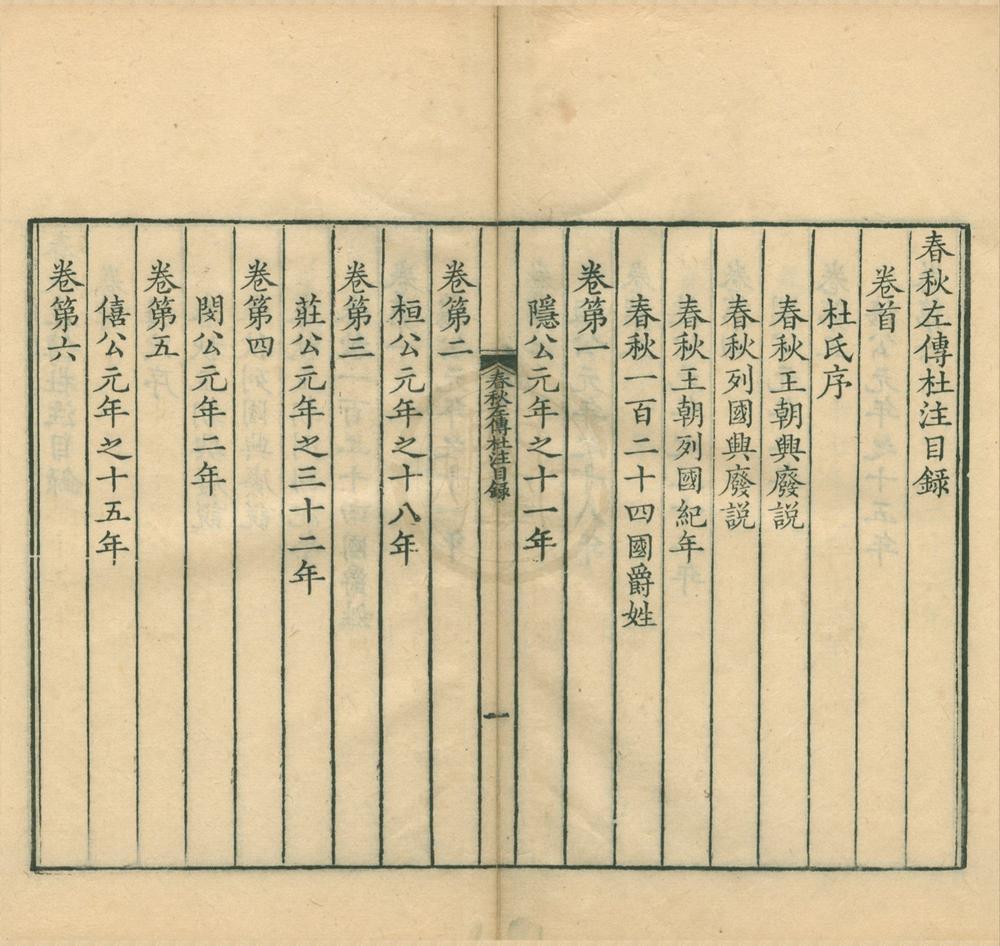 春秋左傳杜注目録
卷首
杜氏序
春秋王朝興廢説
春秋列國興廢説
春秋王朝列國紀年
春秋一百二十四國爵姓
卷第一
隱公元年之十一年
春秋左傳杜注目録
一
卷第二
桓公元年之十八年
卷第三
莊公元年之三十二年
卷第四
閔公元年二年
卷第五
僖公元年之十五年
卷第六